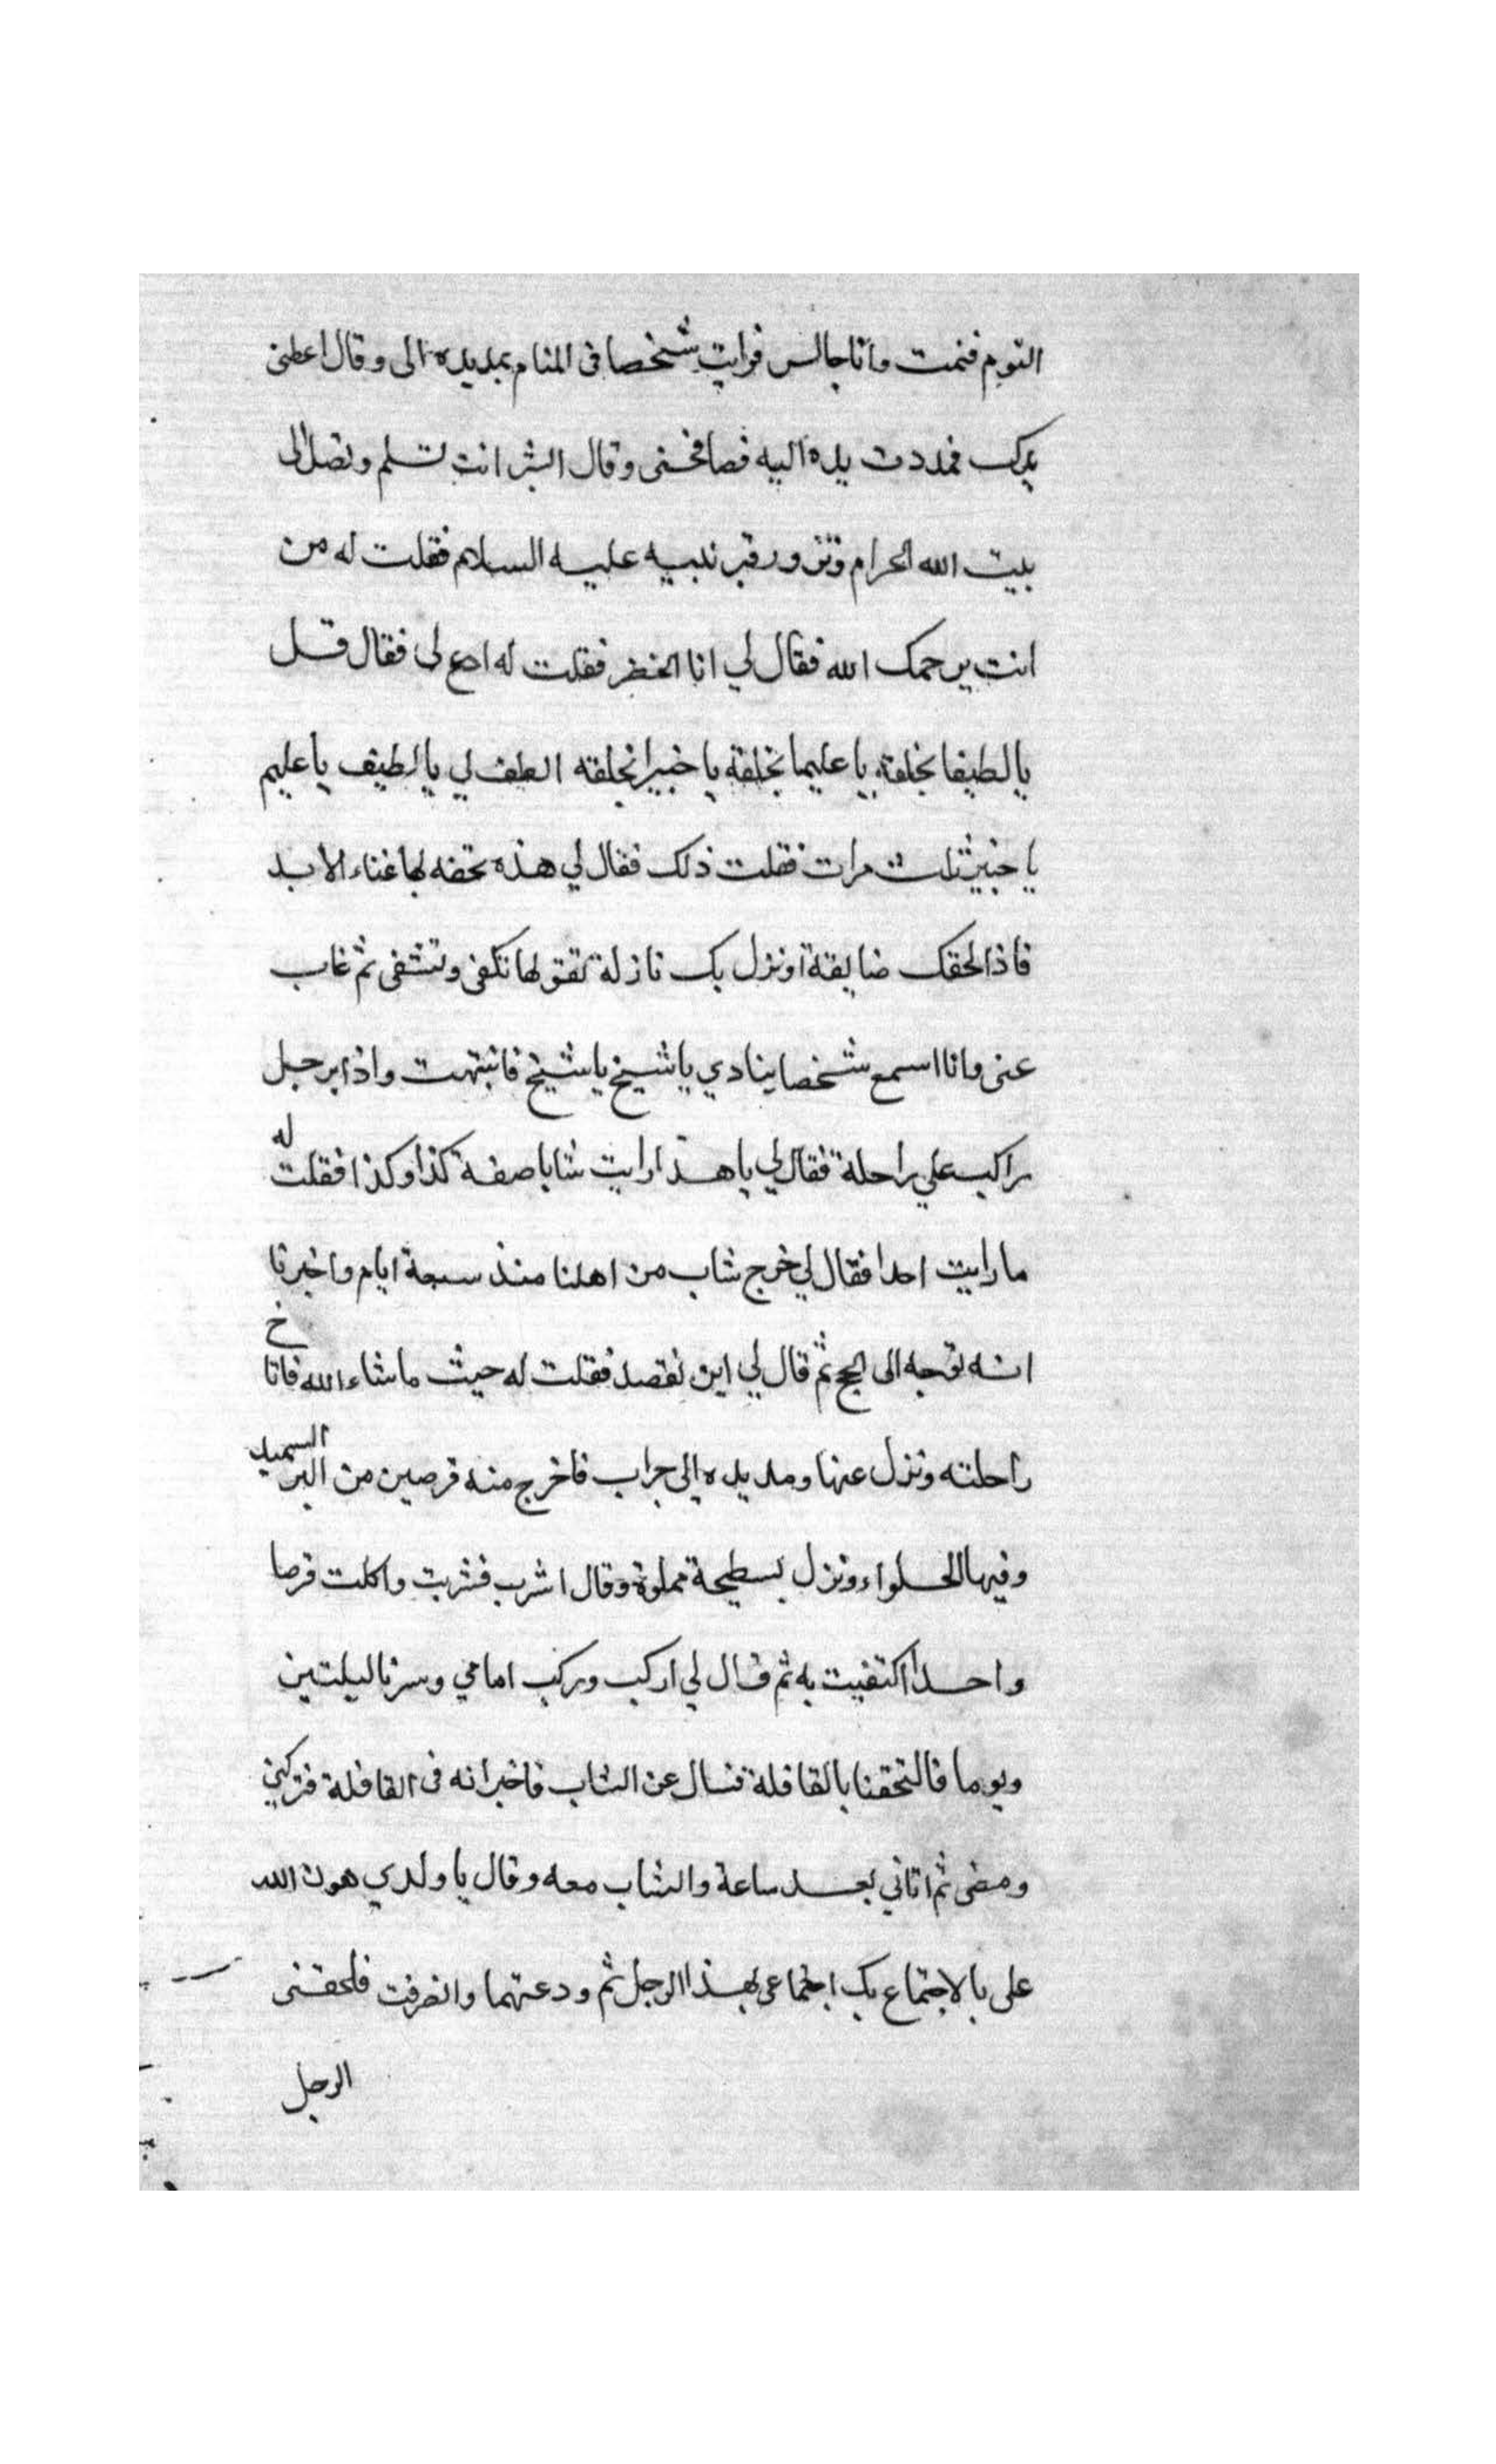 النوم فنمت وانا جالس فرايت شخصا فى المنام يمد يده الى وقال اعطنى
يدك فمددت يده اليه فصافحنى وقال ابشر انت تسلم وتصل الى
بيت الله الحرام وتزور قبر نبيه عليه السلام فقلت له من
انت يرحمك الله فقال لي انا الخضر فقلت له ادع لى فقال قل
يا لطيفا بخلقه يا عليما بخلقه يا خبيرا بخلقه الطف لي يا لطيف يا عليم
يا خبير ثلث مرات فقلت ذلك فقال لي هذه تحفه بها غناء الابد
فاذا لحقك ضايقة او نزل بك نازلة تقولها تكفى وتشفى ثم غاب
عنى وانا اسمع شخصا ينادي يا شيخ يا شيخ فانتبهت واذا برجل
راكب علي راحلة فقال لي يا هذا رايت شابا صفة كذا وكذا فقلت له
ما رايت احدا فقال لي خرج شاب من اهلنا منذ سبعة ايام واخبرنا
انه توجه الى الحج ثم قال لي اين تقصد فقلت له حيث ما شاء الله فاناخ
راحلته ونزل عنها ومد يده الي جراب فاخرج منه قرصين من البر السميد
وفيها الحلواء ونزل بسطيحة مملوة وقال اشرب فشربت واكلت قرصا
واحدا اكتفيت به ثم قال لي اركب وركب امامي وسرنا ليلتين
ويوما فالتحقنا بالقافلة فسال عن الشاب فاخبر انه فى القافلة فتركني
ومضى ثم اتاني بعد ساعة والشاب معه وقال يا ولدي هون الله
على بالاجتماع بك اجتماعى بهذا الرجل ثم ودعتهما وانصرفت فلحقنى
الرجل